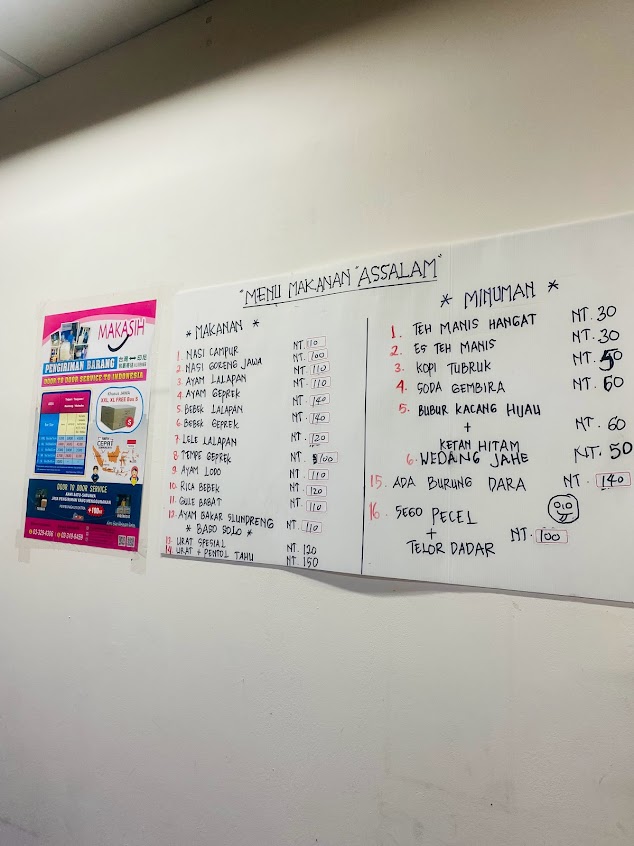 MAKASIH
PENGIRIMAN BARANG
DOOR TO DOOR SERVICE TO INDONESIA
XXL, XL FREE Box S
CEPAT
DOOR TO DOOR SERVICE
+100
03-329-4366
"MENU MAKANAN "ASSALAM"
* MAKANAN *
1. NASI CAMPUR NT. 110
2. NASI GORENG JAWA NT. 100
3. AYAM LALAPAN NT. 110
4. AYAM GEPREK NT. 110
5. BEBEK LALAPAN NT. 140
6. BEBEK GEPREK NT. 140
7. LELE LALAPAN NT. 120
8. TEMPE GEPREK NT. 100
9. AYAM LODO NT. 110
10. RICA BEBEK NT. 120
11. GULE BABAT NT. 110
12. AYAM BAKAR SLUNDRENG NT. 110
* BASO SOLO *
13. URAT SPESIAL NT. 120
14. URAT + PENTOL TAHU NT. 150
* MINUMAN *
1. TEH MANIS HANGAT NT. 30
2. ES TEH MANIS NT. 30
3. KOPI TUBRUK NT. 50
4. SODA GEMBIRA NT. 60
5. BUBUR KACANG HIJAU NT. 60
+
KETAN HITAM
6. WEDANG JAHE NT. 50
15. ADA BURUNG DARA NT. 140
16. SEGO PECEL
+ NT. 100
TELOR DADAR